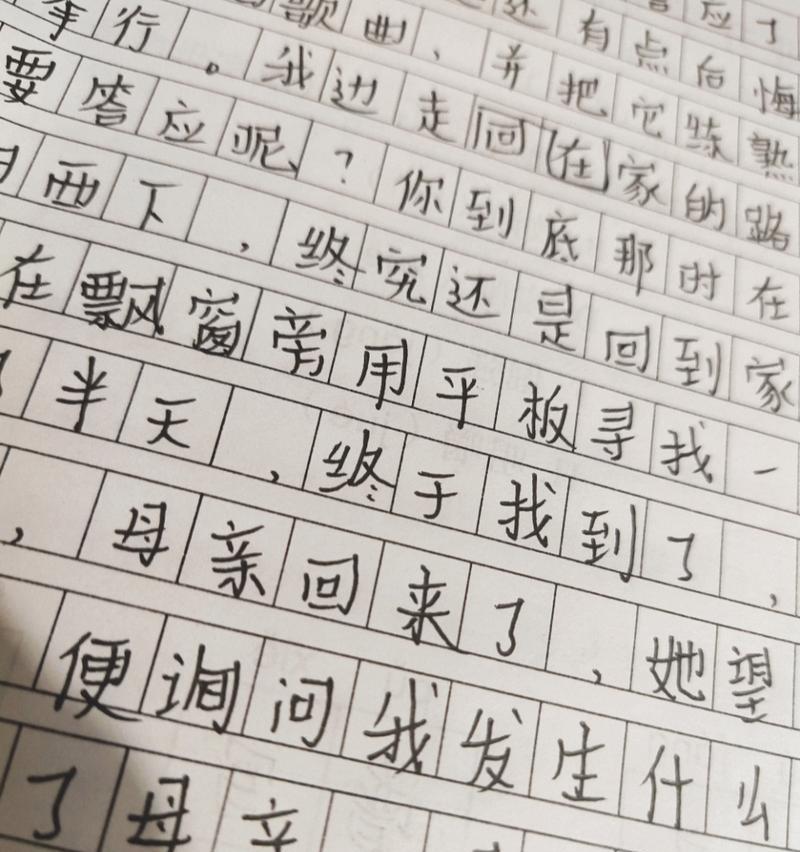 答应了
还有点后悔
歌曲、并把它练熟
事行。我边走回在家的路
要答应呢？你到底那时在
西下，终究还是回到家
在飘窗旁用平板寻找一
半天，终于找到了，
，母亲回来了，她望
便询问我发生什么
了母亲